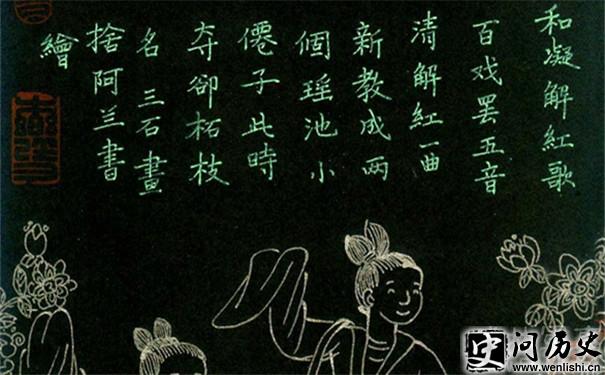 和凝解紅歌
百戏罢五音
清解紅一曲
新教成两
個瑶池小
僊子此時
夺卻柘枝
名 三石畫
捨阿兰書
繪
问历史
www.wenlishi.cn